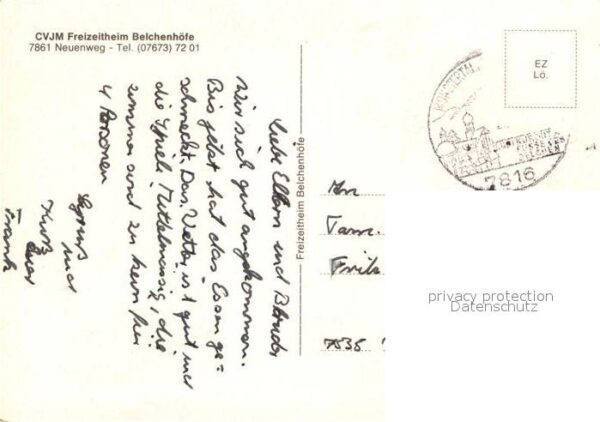 CVJM Freizeitheim Belchenhöfe
7861 Neuenweg - Tel. (07673) 72 01
Liebe Eltern und Bruder
Wir sind gut angekommen.
Bis jetzt hat das Essen ge=
schmeckt. Das Wetter ist gut und
die Spiele Mittelmässig, die
Zimmer sind zu klein bei
4 Personen
Gruß
und
Kuß
euer
Frank
Freizeitheim Belchenhöfe
Fam.
7535
EZ
Lö.
MÜNSTERTAL
7816
privacy protection
Datenschutz